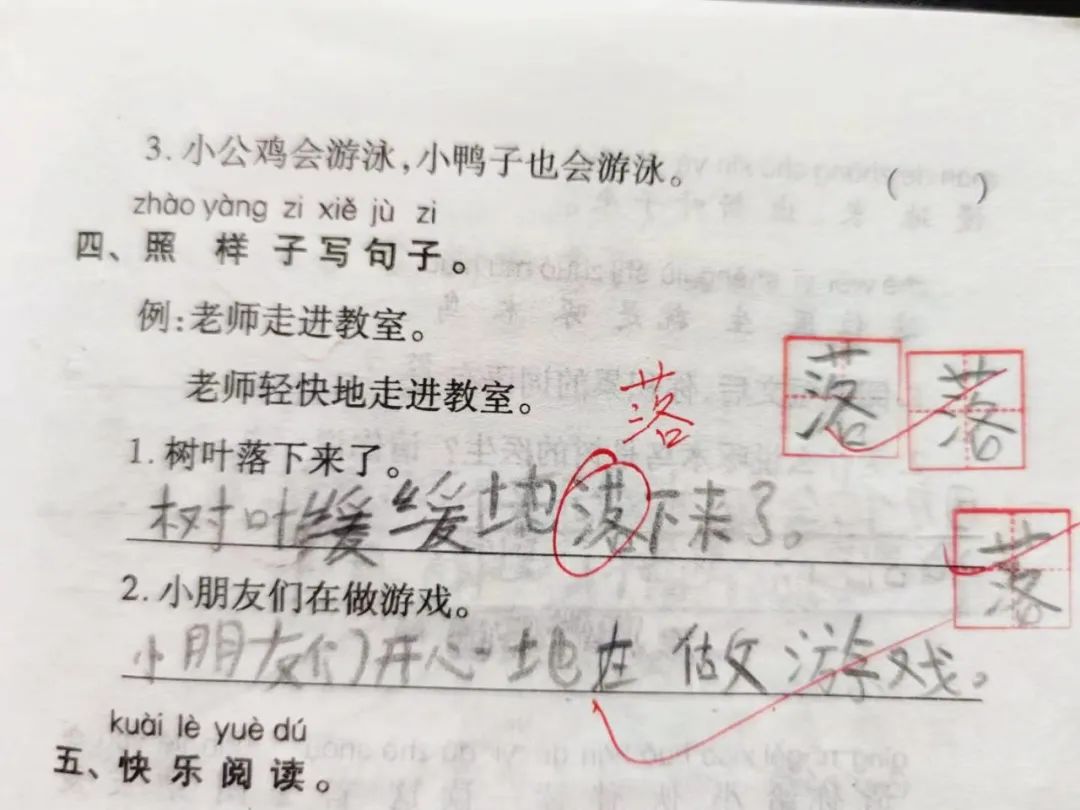 3. 小公鸡会游泳,小鸭子也会游泳。 ( )
zhào yàng zi xiě jù zi
四、照 样 子 写 句 子。
例:老师走进教室。
老师轻快地走进教室。
落
落 落
1. 树叶落下来了。
树叶缓缓地落下来了。
落
2. 小朋友们在做游戏。
小朋友们开心地在做游戏。
kuài lè yuè dú
五、快 乐 阅 读。